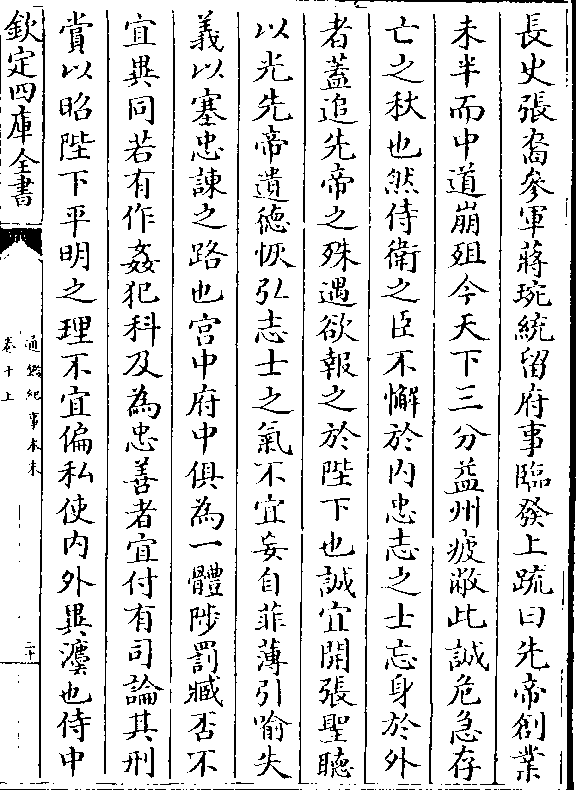 長史張裔參軍蔣琬統留府事臨發上疏曰先帝創業
未半而中道崩殂今天下三分益州疲敝此誠危急存
亡之秋也然侍衛之臣不懈於内忠志之士忘身於外
者蓋追先帝之殊遇欲報之於陛下也誠宜開張聖聽
以光先帝遺德恢弘志士之氣不宜妄自菲薄引喻失
義以塞忠諫之路也宫中府中俱為一體陟罰臧否不
宜異同若有作姦犯科及為忠善者宜付有司論其刑
賞以昭陛下平明之理不宜偏私使内外異灋也侍中
欽定四庫全書
通鑑紀事本末
卷十上
二十